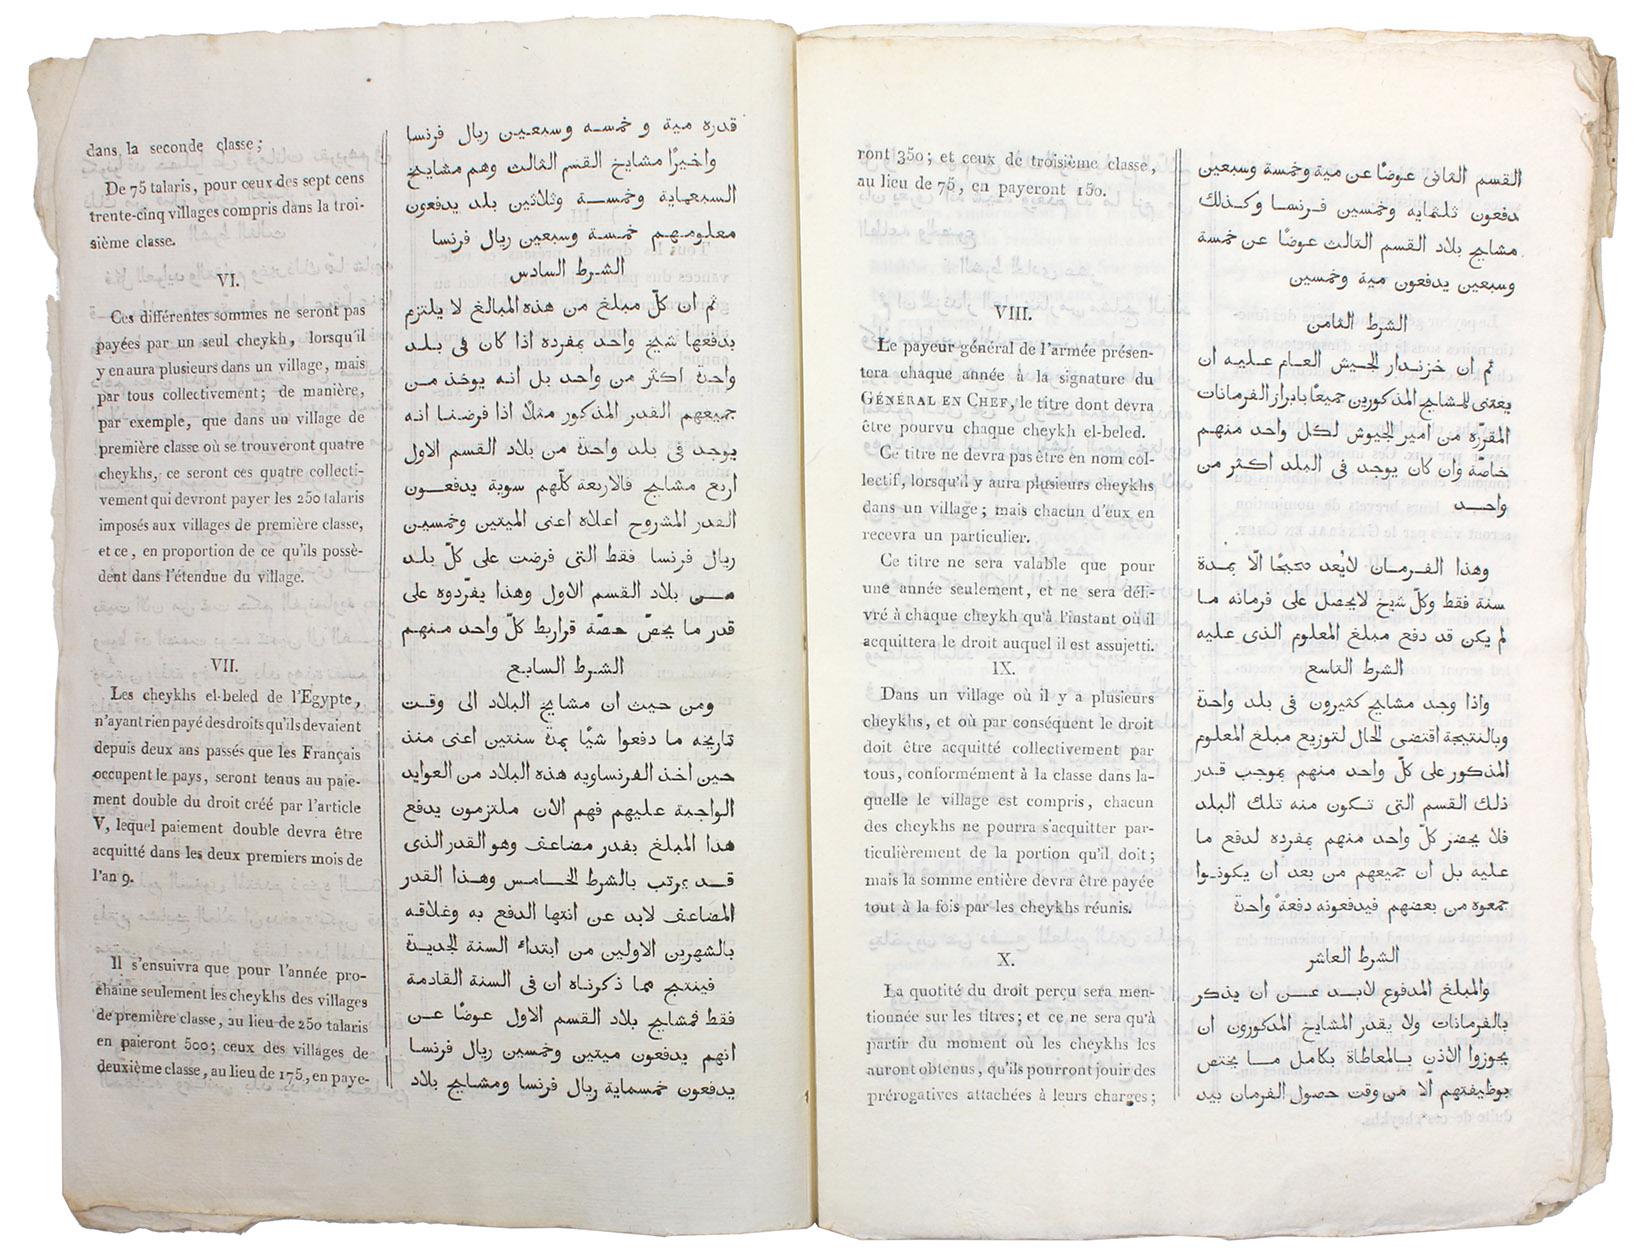 dans la seconde classe;
De 75 talaris, pour ceux des sept cens
trente-cinq villages compris dans la troi-
sième classe.
VI.
Ces différentes sommes ne seront pas
payées par un seul cheykh, lorsqu'il
y en aura plusieurs dans un village, mais
par tous collectivement; de manière,
par exemple, que dans un village de
première classe où se trouveront quatre
cheykhs, ce seront ces quatre collecti-
vement qui devront payer les 250 talaris
imposés aux villages de première classe,
et ce, en proportion de ce qu'ils possè-
dent dans l'étendue du village.
VII.
Les cheykhs el-beled de l'Egypte,
n'ayant rien payé des droits qu'ils devaient
depuis deux ans passés que les Français
occupent le pays, seront tenus au paie-
ment double du droit créé par l'article
V, lequel paiement double devra être
acquitté dans les deux premiers mois de
l'an 9.
Il s'ensuivra que pour l'année pro-
chaine seulement les cheykhs des villages
de première classe, au lieu de 250 talaris
en paieront 500; ceux des villages de
deuxième classe, au lieu de 175, en paye-
قدره مية و خمسه وسبعين ريال فرنسا
واخيرًا مشايخ القسم الثالث وهم مشايخ
السبعماية وخمسة وثلاثين بلد يدفعون
معلومهم خمسة وسبعين ريال فرنسا
الشرط السادس
ثم ان كلّ مبلغ من هذه المبالغ لا يلتزم
بدفعها شيخ واحد بمفرده اذا كان فى بلد
واحدة اكثر من واحد بل انه يوخذ من
جميعهم القدر المذكور مثلًا اذا فرضنا انه
يوجد فى بلد واحدة من بلاد القسم الاول
اربع مشايخ فالاربعة كلّهم سوية يدفعون
القدر المشروح اعلاه اعنى الميتين وخمسين
ريال فرنسا فقط التى فرضت على كلّ بلد
من بلاد القسم الاول وهذا يفرّدوه على
قدر ما يخصّ حصّة قراريط كلّ واحد منهم
الشرط السابع
ومن حيث ان مشايخ البلاد الى وقت
تاريخه ما دفعوا شيًا بمدة سنتين اعنى منذ
حين اخذ الفرنساويه هذه البلاد من العوايد
الواجبة عليهم فهم الان ملتزمون يدفع
هذا المبلغ بقدر مضاعف وهو القدر الذى
قد يرتب بالشرط الخامس وهذا القدر
المضاعف لابد عن انتها الدفع به وغلاقه
بالشهرين الاولين من ابتداء السنة الجديدة
فينتج مما ذكرناه ان فى السنة القادمة
فقط فمشايخ بلاد القسم الاول عوضًا عن
انهم يدفعون ميتين وخمسين ريال فرنسا
يدفعون خمسماية ريال فرنسا ومشايخ بلاد
ront 350; et ceux de troisième classe,
au lieu de 75, en payeront 150.
VIII.
Le payeur général de l'armée présen-
tera chaque année à la signature du
GÉNÉRAL EN CHEF, le titre dont devra
être pourvu chaque cheykh el-beled.
Ce titre ne devra pas être en nom col-
lectif, lorsqu'il y aura plusieurs cheykhs
dans un village; mais chacun d'eux en
recevra un particulier.
Ce titre ne sera valable que pour
une année seulement, et ne sera déli-
vré à chaque cheykh qu'à l'instant où il
acquittera le droit auquel il est assujetti.
IX.
Dans un village où il y a plusieurs
cheykhs, et où par conséquent le droit
doit être acquitté collectivement par
tous, conformément à la classe dans la-
quelle le village est compris, chacun
des cheykhs ne pourra s'acquitter par-
ticulièrement de la portion qu'il doit;
mais la somme entière devra être payée
tout à la fois par les cheykhs réunis.
X.
La quotité du droit perçu sera men-
tionnée sur les titres; et ce ne sera qu'à
partir du moment où les cheykhs les
auront obtenus, qu'ils pourront jouir des
prérogatives attachées à leurs charges;
القسم الثانى عوضًا عن مية وخمسة وسبعين
يدفعون ثلثمايه وخمسين فرنسا وكذلك
مشايخ بلاد القسم الثالث عوضًا عن خمسة
وسبعين يدفعون مية وخمسين
الشرط الثامن
ثم ان خزندار الجيش العام عليه ان
يعتنى للمشايخ المذكورين جميعًا بابراز الفرمانات
المقرّره من امير الجيوش لكل واحد منهم
خاصّة وان كان يوجد فى البلد اكثر من
واحد
وهذا الفرمان لايُعد صحيحًا الّا بمدة
سنة فقط وكلّ شيخ لايحصل على فرمانه ما
لم يكن قد دفع مبلغ المعلوم الذى عليه
الشرط التاسع
واذا وجد مشايخ كثيرون فى بلد واحدة
وبالنتيجة اقتضى الحال لتوزيع مبلغ المعلوم
المذكور على كلّ واحد منهم بموجب قدر
ذلك القسم التى تكون منه تلك البلد
فلا يحضر كلّ واحد منهم بمفرده لدفع ما
عليه بل ان جميعهم من بعد ان يكونوا
جمعوه من بعضهم فيدفعونه دفعةً واحدة
الشرط العاشر
والمبلغ المدفوع لابد عن ان يذكر
بالفرمانات ولا يقدر المشايخ المذكورون ان
يجوزوا الاذن بالمعاطاة بكامل ما يختص
بوظيفتهم الّا من وقت حصول الفرمان بيد